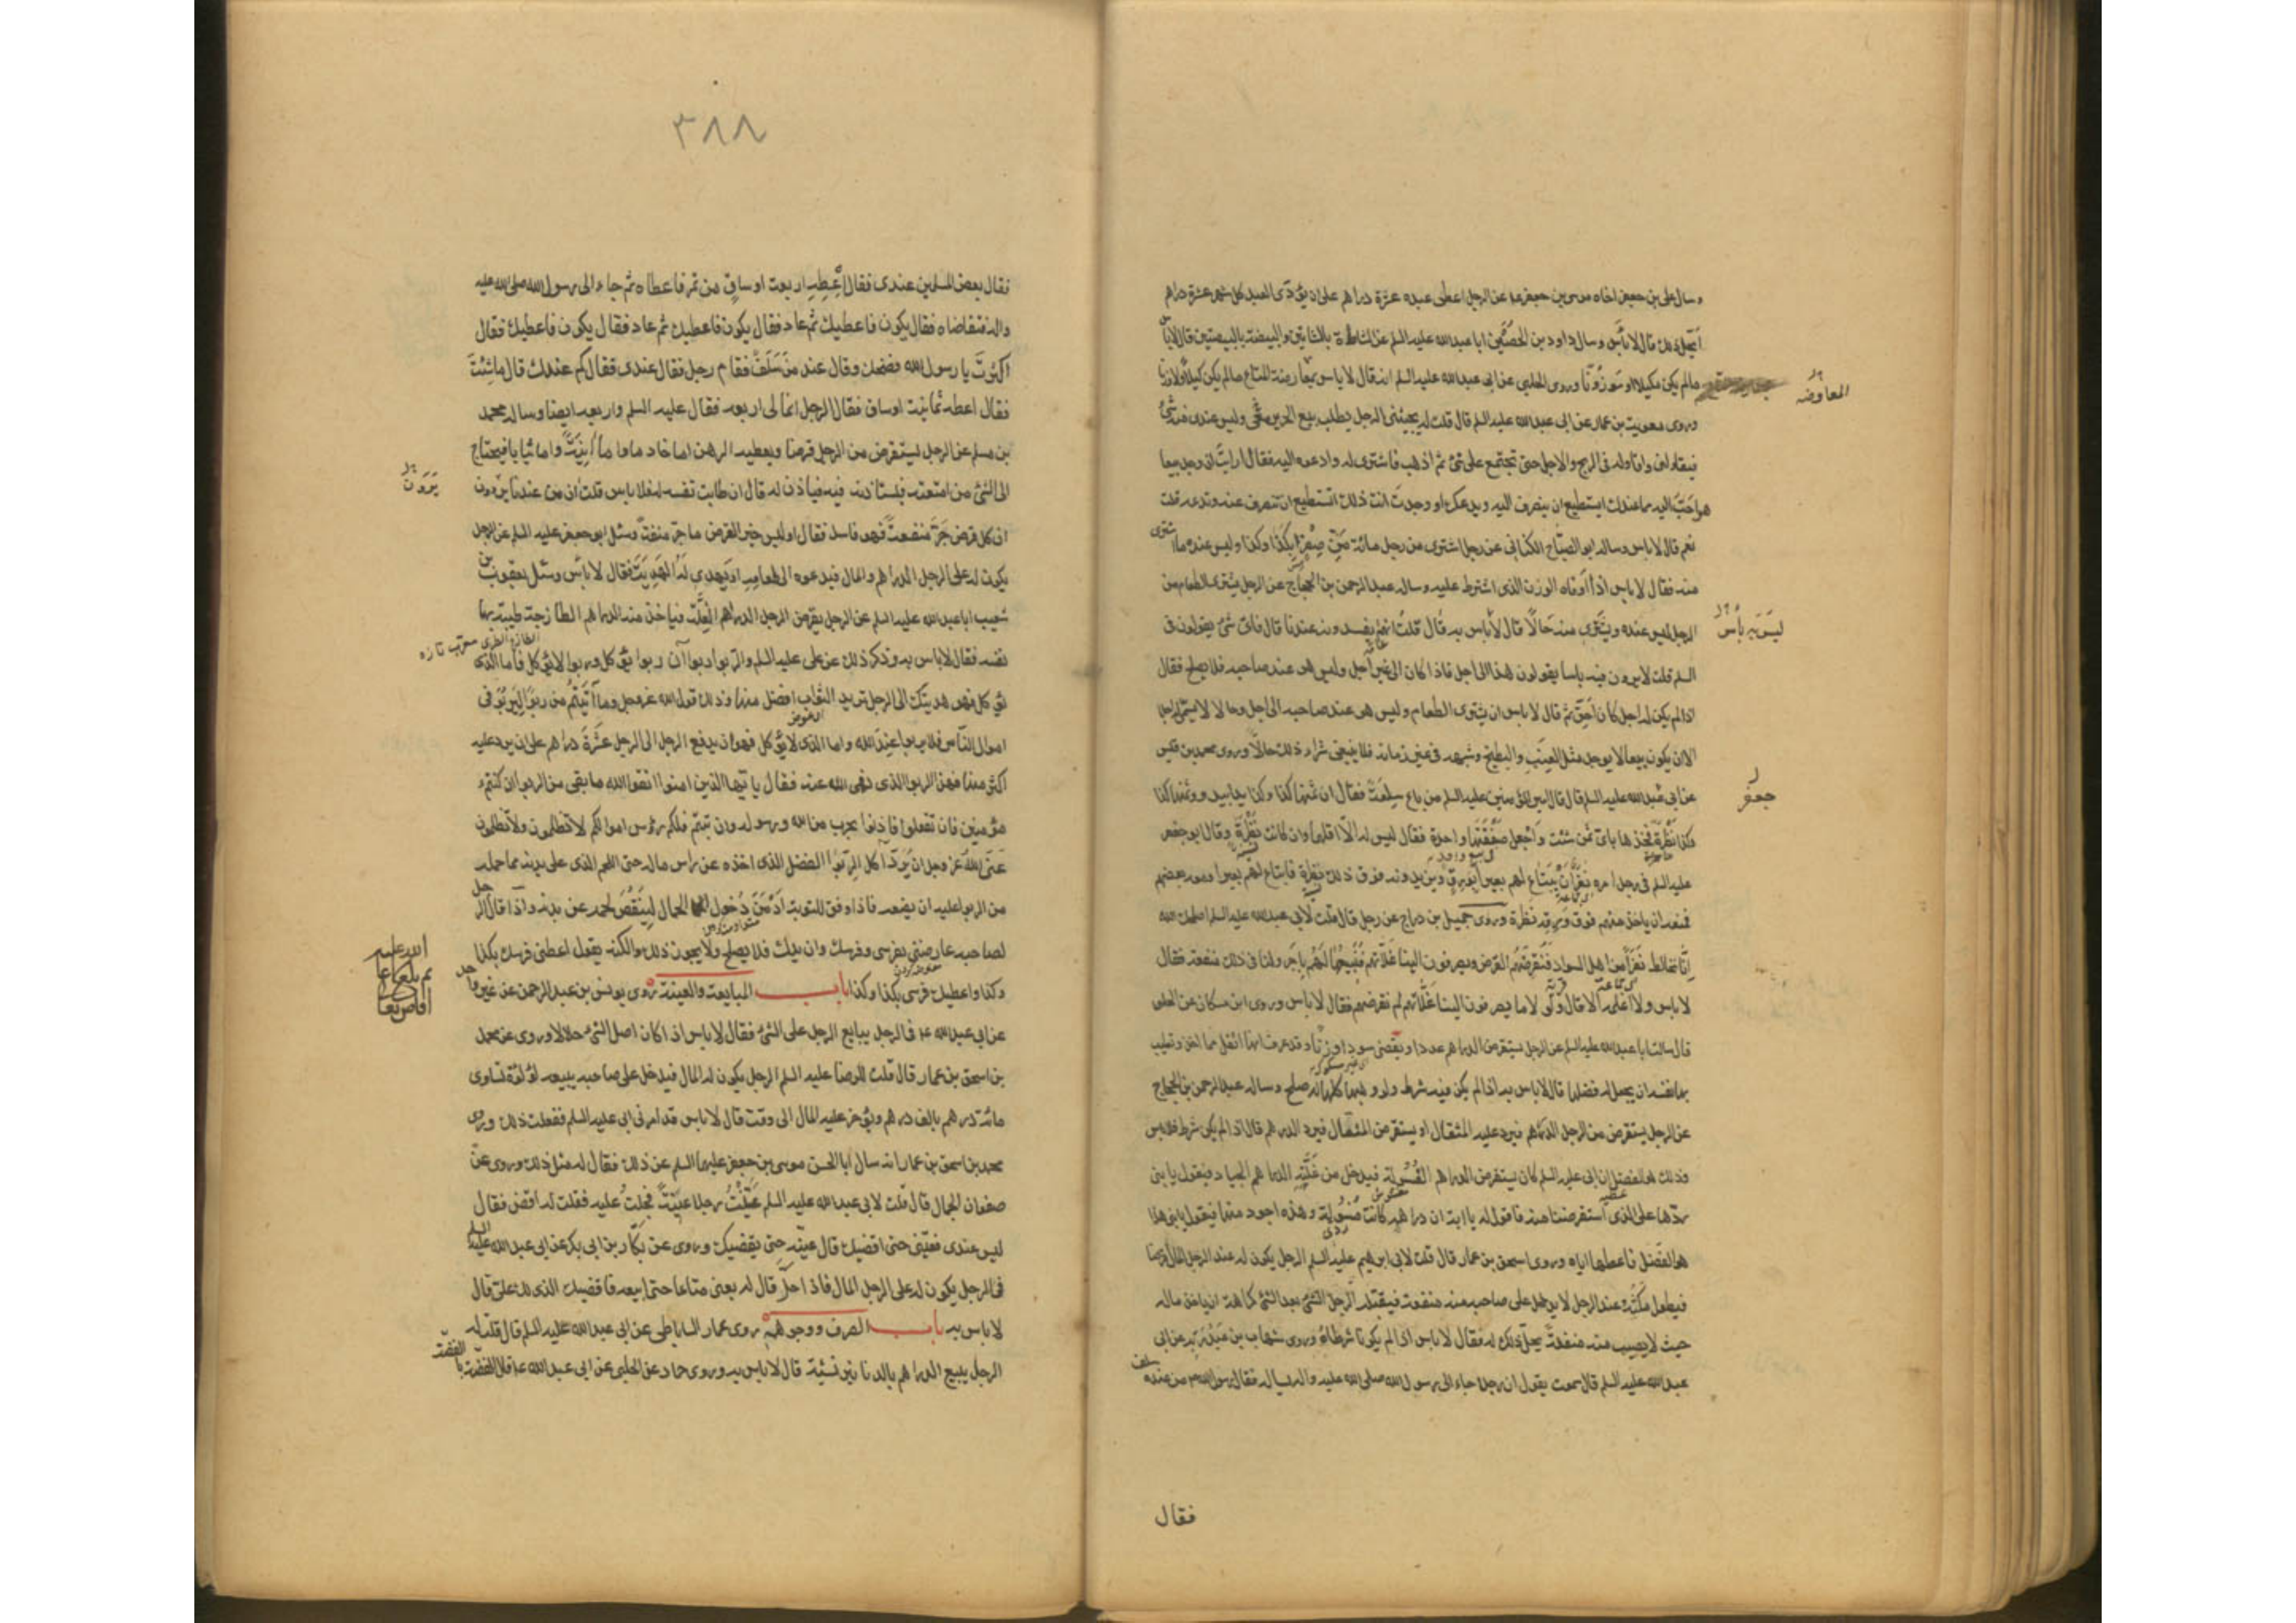 وسال علي بن جعفر اخاه موسى بن جعفر ع عن الرجل اعطى عبده عشرة دراهم على ان يؤدى العبد كل شهر عشرة دراهم
ايحل ذلك قال لا باس وسال داود بن الحصين ابا عبد الله عليه السلم عن الشاة بالشاتين والبيضة بالبيضتين قال لا باس
مالم يكن مكيلا او موزونا وروى الحلبي عن ابى عبد الله عليه السلم انه قال لا باس بمعارضة المتاع مالم يكن كيلا ولا وزنا
المعاوضه
وروى معوية بن عمار عن ابى عبد الله عليه السلم قال قلت له يجيئنى الرجل يطلب بيع الحرير منى وليس عندى منه شئ
فيقاولنى واقاوله فى الربح والاجل حتى نجتمع على شئ ثم اذهب فاشترى له وادعوه اليه فقال ارايت ان وجد بيعا
هو احب اليه مما عندك ايستطيع ان ينصرف اليه ويدعك او وجدت انت ذلك اتستطيع ان تنصرف عنه وتدعه قلت
نعم قال لا باس وساله ابو الصباح الكنانى عن رجل اشترى من رجل مائة من صفرا بكذا وكذا وليس عنده ما اشترى
منه فقال لا باس اذا اوفاه الوزن الذى اشترط عليه وساله عبد الرحمن بن الحجاج عن الرجل يشترى الطعام من
الرجل ليس عنده ويشترى منه حالا قال لا باس به قال قلت انهم يفسدونه عندنا قال فاى شئ يقولون فى
ليس به باس
السلم قلت لا يرون فيه باسا يقولون هذا الى اجل فاذا كان الى غير اجل وليس هو عند صاحبه فلا يصلح فقال
اذا لم يكن له اجل كان احق ثم قال لا باس ان يشترى الطعام وليس هو عند صاحبه الى اجل وحالا لا يسمى له اجلا
الا ان يكون بيعا لا يوجد مثل العنب والبطيخ وشبهه فى غير زمانه فلا ينبغى شراء ذلك حالا وروى محمد بن قيس
عن ابى عبد الله عليه السلم قال قال امير المؤمنين عليه السلم من باع سلعة فقال ان ثمنها كذا وكذا يدا بيد وثمنها كذا
جعفر
كذا نظرة فخذها باى ثمن شئت واجعل صفقتها واحدة فقال ليس له الا اقلهما وان كانت نظرة وقال ابو جعفر
عليه السلم فى رجل امره نفر ان يبتاع لهم بعيرا بورق ويزيدونه فوق ذلك نظرة فابتاع لهم بعيرا ومعه بعضهم
فمنعه ان ياخذ منهم فوق ورقه نظرة وروى جميل بن دراج عن رجل قال قلت لابى عبد الله عليه السلم اصلحك الله
انا نخالط نفرا من اهل السواد فنقرضهم القرض ويصرفون الينا غلاتهم فنبيعها لهم باجر ولنا فى ذلك منفعة فقال
لا باس ولا اعلمه الا قال ولو لا ما يصرفون الينا غلاتهم لم نقرضهم فقال لا باس وروى ابن مسكان عن الحلبى
قال سالت ابا عبد الله عليه السلم عن الرجل يستقرض الدراهم عددا ويقضى سودا وزنا وقد عرف انها اثقل مما اخذ وتطيب
بها نفسه ان يجعل له فضلها قال لا باس به اذا لم يكن فيه شرط ولو وهبها كلها له صلح وساله عبد الرحمن بن الحجاج
عن الرجل يستقرض من الرجل الدراهم فيرد عليه المثقال او يستقرض المثقال فيرد الدراهم قال اذا لم يكن شرط فلا باس
وذلك هو الفضل ان ابى عليه السلم كان يستقرض الدراهم الفسولة فيدخل من غلته الدراهم الجياد فيقول يا بنى
ردها على الذى استقرضنا منه فاقول له يا ابه ان دراهمه كانت فسولة وهذه اجود منها فيقول يا بنى هذا
هو الفضل فاعطها اياه وروى اسحق بن عمار قال قلت لابى ابرهيم عليه السلم الرجل يكون له عند الرجل المال قرضا
فيطول مكثه عند الرجل لا يدخل على صاحبه منه منفعة فينيله الرجل الشئ بعد الشئ كراهة ان ياخذ ماله
حيث لا يصيب منه منفعة يحل ذلك له فقال لا باس اذا لم يكونا شرطاه وروى شهاب بن عبد ربه عن ابى
عبد الله عليه السلم قال سمعته يقول ان رجلا جاء الى رسول الله صلى الله عليه واله يساله فقال رسول الله ص من عنده سلف
فقال
٣٨٨
فقال بعض المسلمين عندى فقال اعطه اربعة اوساق من تمر فاعطاه ثم جاء الى رسول الله صلى الله عليه
واله فتقاضاه فقال يكون فاعطيك ثم عاد فقال يكون فاعطيك ثم عاد فقال يكون فاعطيك فقال
اكثرت يا رسول الله فضحك وقال عند من سلف فقام رجل فقال عندى فقال كم عندك قال ما شئت
فقال اعطه ثمانية اوساق فقال الرجل انما لى اربعة فقال عليه السلم واربعة ايضا وساله محمد
بن مسلم عن الرجل يستقرض من الرجل قرضا ويعطيه الرهن اما خادما واما انية واما ثيابا فيحتاج
الى الشئ من امتعته فيستاذنه فيه فياذن له قال ان طابت نفسه له فلا باس قلت ان من عندنا يروون
يرون
ان كل قرض جر منفعة فهو فاسد فقال اوليس خير القرض ما جر منفعة وسئل ابو جعفر عليه السلم عن الرجل
يكون له على الرجل الدراهم والمال فيدعوه الى طعامه او يهدي له الهدية فقال لا باس وسئل يعقوب بن
شعيب ابا عبد الله عليه السلم عن الرجل يقرض الرجل الدراهم الغلة فياخذ منه الدراهم الطازجة طيبة بها
الطازج الطرى معرب تازه
نفسه فقال لا باس به وذكر ذلك عن على عليه السلم والربوا ربوا ان ربوا يؤكل وربوا لا يؤكل فاما الذى
يؤكل فهو هديتك الى الرجل تريد الثواب افضل منها وذلك قول الله عز وجل وما اتيتم من ربوا ليربو فى
اموال الناس فلا يربوا عند الله واما الذى لا يؤكل فهو ان يدفع الرجل الى الرجل عشرة دراهم على ان يرد عليه
اكثر منها فهذا الربوا الذى نهى الله عنه فقال يا ايها الذين امنوا اتقوا الله ما بقى من الربوا ان كنتم
مؤمنين فان تفعلوا فاذنوا بحرب من الله ورسوله وان تبتم فلكم رؤس اموالكم لا تظلمون ولا تظلمون
عنى الله عز وجل ان يرد اكل الربوا الفضل الذى اخذه عن راس ماله حتى اللحم الذى على بدنه مما حمله
من الربوا عليه ان يضعه فاذا وفق للتوبة ادمن دخول الحمام لينقص لحمه عن بدنه واذا قال الرجل
لصاحبه عارضنى بفرسى وفرسك وازيدك فلا يصلح ولا يجوز ذلك ولكنه يقول اعطنى فرسك بكذا
وكذا واعطيك فرسى بكذا وكذا باب المبايعة والعينة روى يونس بن عبد الرحمن عن غير واحد
عن ابى عبد الله ع فى الرجل يبايع الرجل على الشئ فقال لا باس اذا كان اصل الشئ حلالا وروى عن محمد
بن اسحق بن عمار قال قلت للرضا عليه السلم الرجل يكون له المال فيدخل على صاحبه يبيعه لؤلؤة تساوى
مائة درهم بالف درهم ويؤخر عليه المال الى وقت قال لا باس قد امرنى ابى عليه السلم ففعلت ذلك وروى
محمد بن اسحق بن عمار انه سال ابا الحسن موسى بن جعفر عليهما السلم عن ذلك فقال له مثل ذلك وروى عن
صفوان الجمال قال قلت لابى عبد الله عليه السلم عينت رجلا عينة فحلت عليه فقلت له اقضنى فقال
ليس عندى فعينى حتى اقضيك قال عينه حتى يقضيك وروى عن بكار بن ابى بكر عن ابى عبد الله عليه السلم
فى الرجل يكون له على الرجل المال فاذا حل قال له بعنى متاعا حتى ابيعه فاقضيك الذى لك على قال
لا باس به باب الصرف ووجوهه روى عمار الساباطى عن ابى عبد الله عليه السلم قال قلت له
الرجل يبيع الدراهم بالدنانير نسيئة قال لا باس به وروى حماد عن الحلبى عن ابى عبد الله ع قال الفضة بالفضة